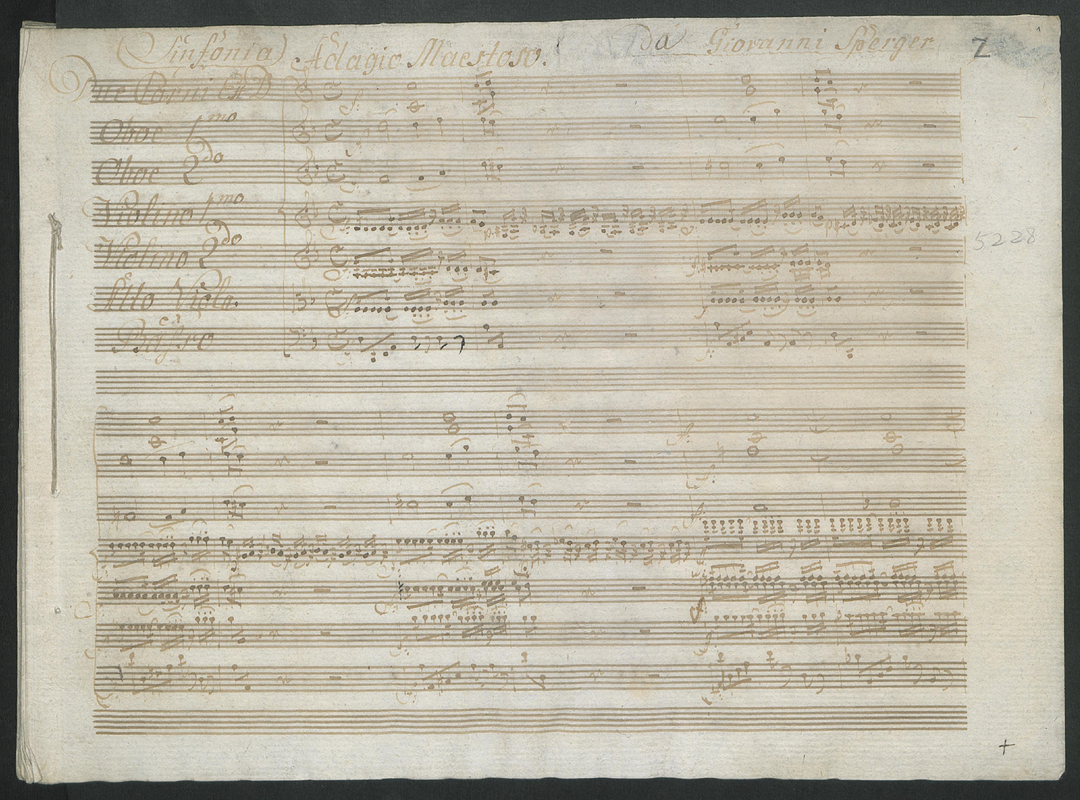 (Sinfonia) Adagio Maestoso. Da Giovanni Sperger 2
Due Corni Ex D
Oboe 1mo
Oboe 2do
Violino 1mo
Violino 2do
5228
Alto Viola
Basso
+